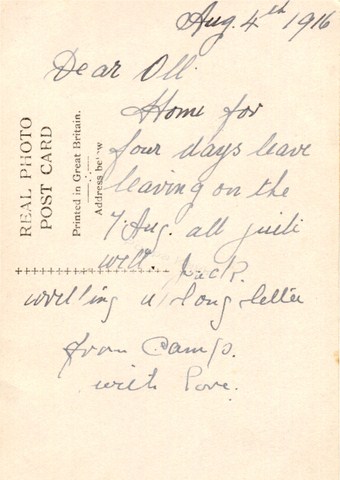 Aug. 4th 1916
Dear Oll.
Home for
four days leave
leaving on the
7 Aug. all quite
well. Jack.
writting a long letter
from Camp.
with love.
REAL PHOTO
POST CARD
Printed in Great Britain.
Address below